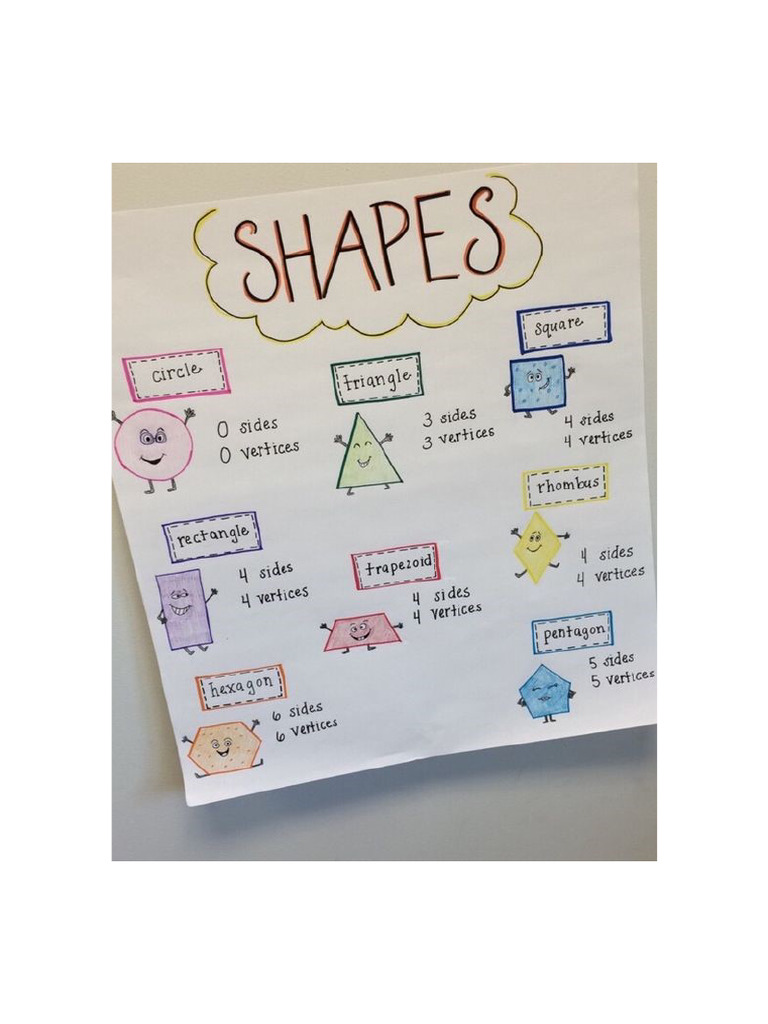 SHAPES
circle
0 sides
0 vertices
triangle
3 sides
3 vertices
square
4 sides
4 vertices
rectangle
4 sides
4 vertices
trapezoid
4 sides
4 vertices
rhombus
4 sides
4 vertices
hexagon
6 sides
6 vertices
pentagon
5 sides
5 vertices